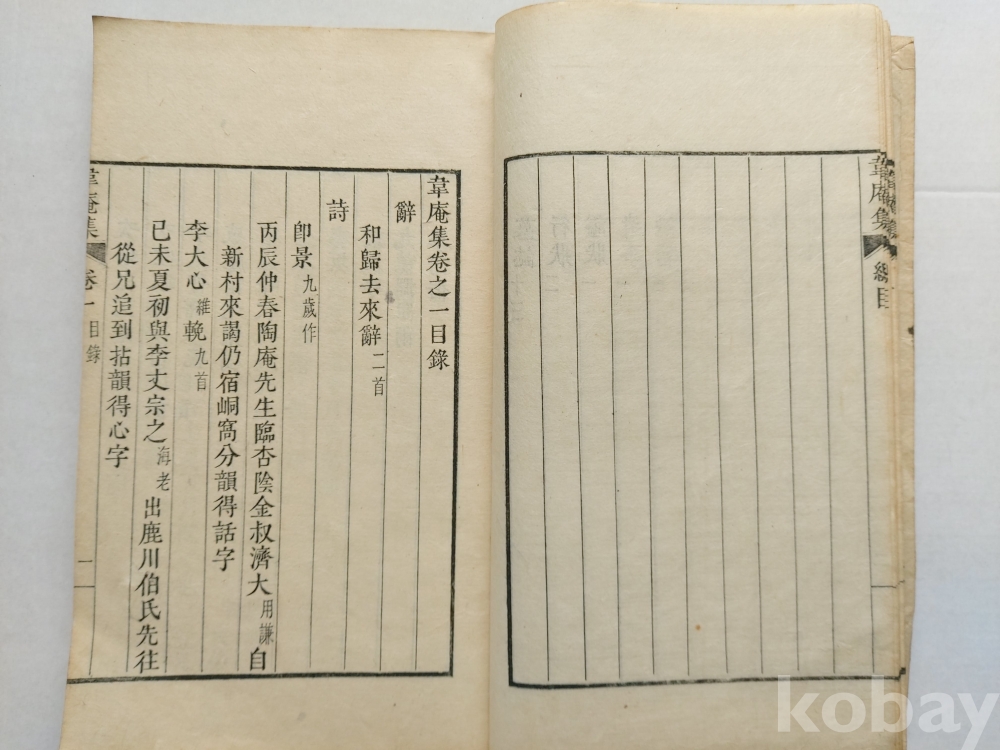 韋庵集
總目
韋庵集卷之一目錄
辭
和歸去來辭二首
詩
卽景九歲作
丙辰仲春陶庵先生臨杏陰金叔濟大用謙自
新村來謁仍宿峒窩分韻得話字
李大心維輗九首
己未夏初與李丈宗之海老出鹿川伯氏先往
從兄追到拈韻得心字
韋庵集
卷一
目錄
一
kobay